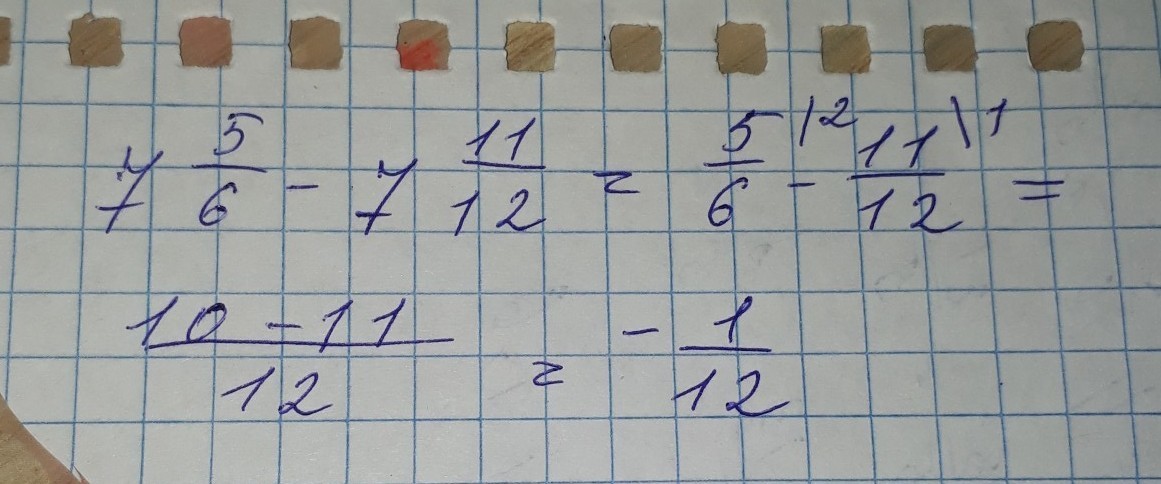 7 5/6 - 7 11/12 = 5/6 |2 - 11/12 \1 =
10 - 11/12 = - 1/12